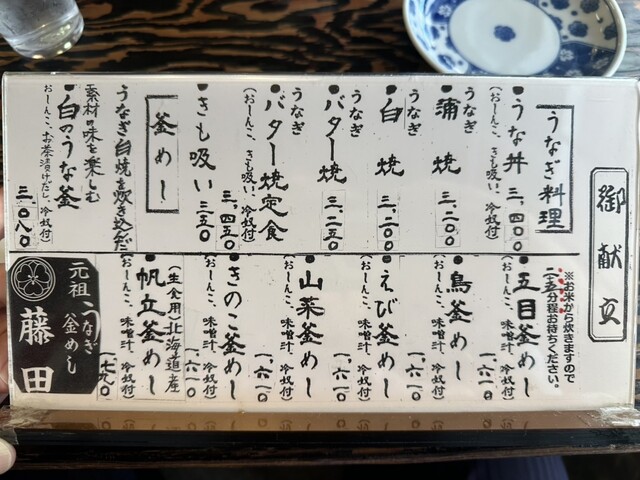 御献立
うなぎ料理
●うな丼 三、四〇〇
(おしんこ、きも吸い、冷奴付)
●うなぎ蒲焼 三、二〇〇
●うなぎ白焼 三、二〇〇
●うなぎバター焼 三、二五〇
●うなぎバター焼定食
(おしんこ、きも吸い、冷奴付)
三、四五〇
●きも吸い 三五〇
釜めし
うなぎ白焼を炊き込んだ
素材の味を楽しむ
●白のうな釜
(おしんこ、お茶漬けだし、冷奴付)
三、〇八〇
※お米から炊きますので
二五分程お待ちください。
●五目釜めし
(おしんこ、味噌汁、冷奴付)
一、六一〇
●鳥釜めし
(おしんこ、味噌汁、冷奴付)
一、六一〇
●えび釜めし
(おしんこ、味噌汁、冷奴付)
一、六一〇
●山菜釜めし
(おしんこ、味噌汁、冷奴付)
一、六一〇
●きのこ釜めし
(おしんこ、味噌汁、冷奴付)
一、六一〇
(生食用)北海道産
●帆立釜めし
(おしんこ、味噌汁、冷奴付)
一、七九〇
元祖うなぎ釜めし
藤田